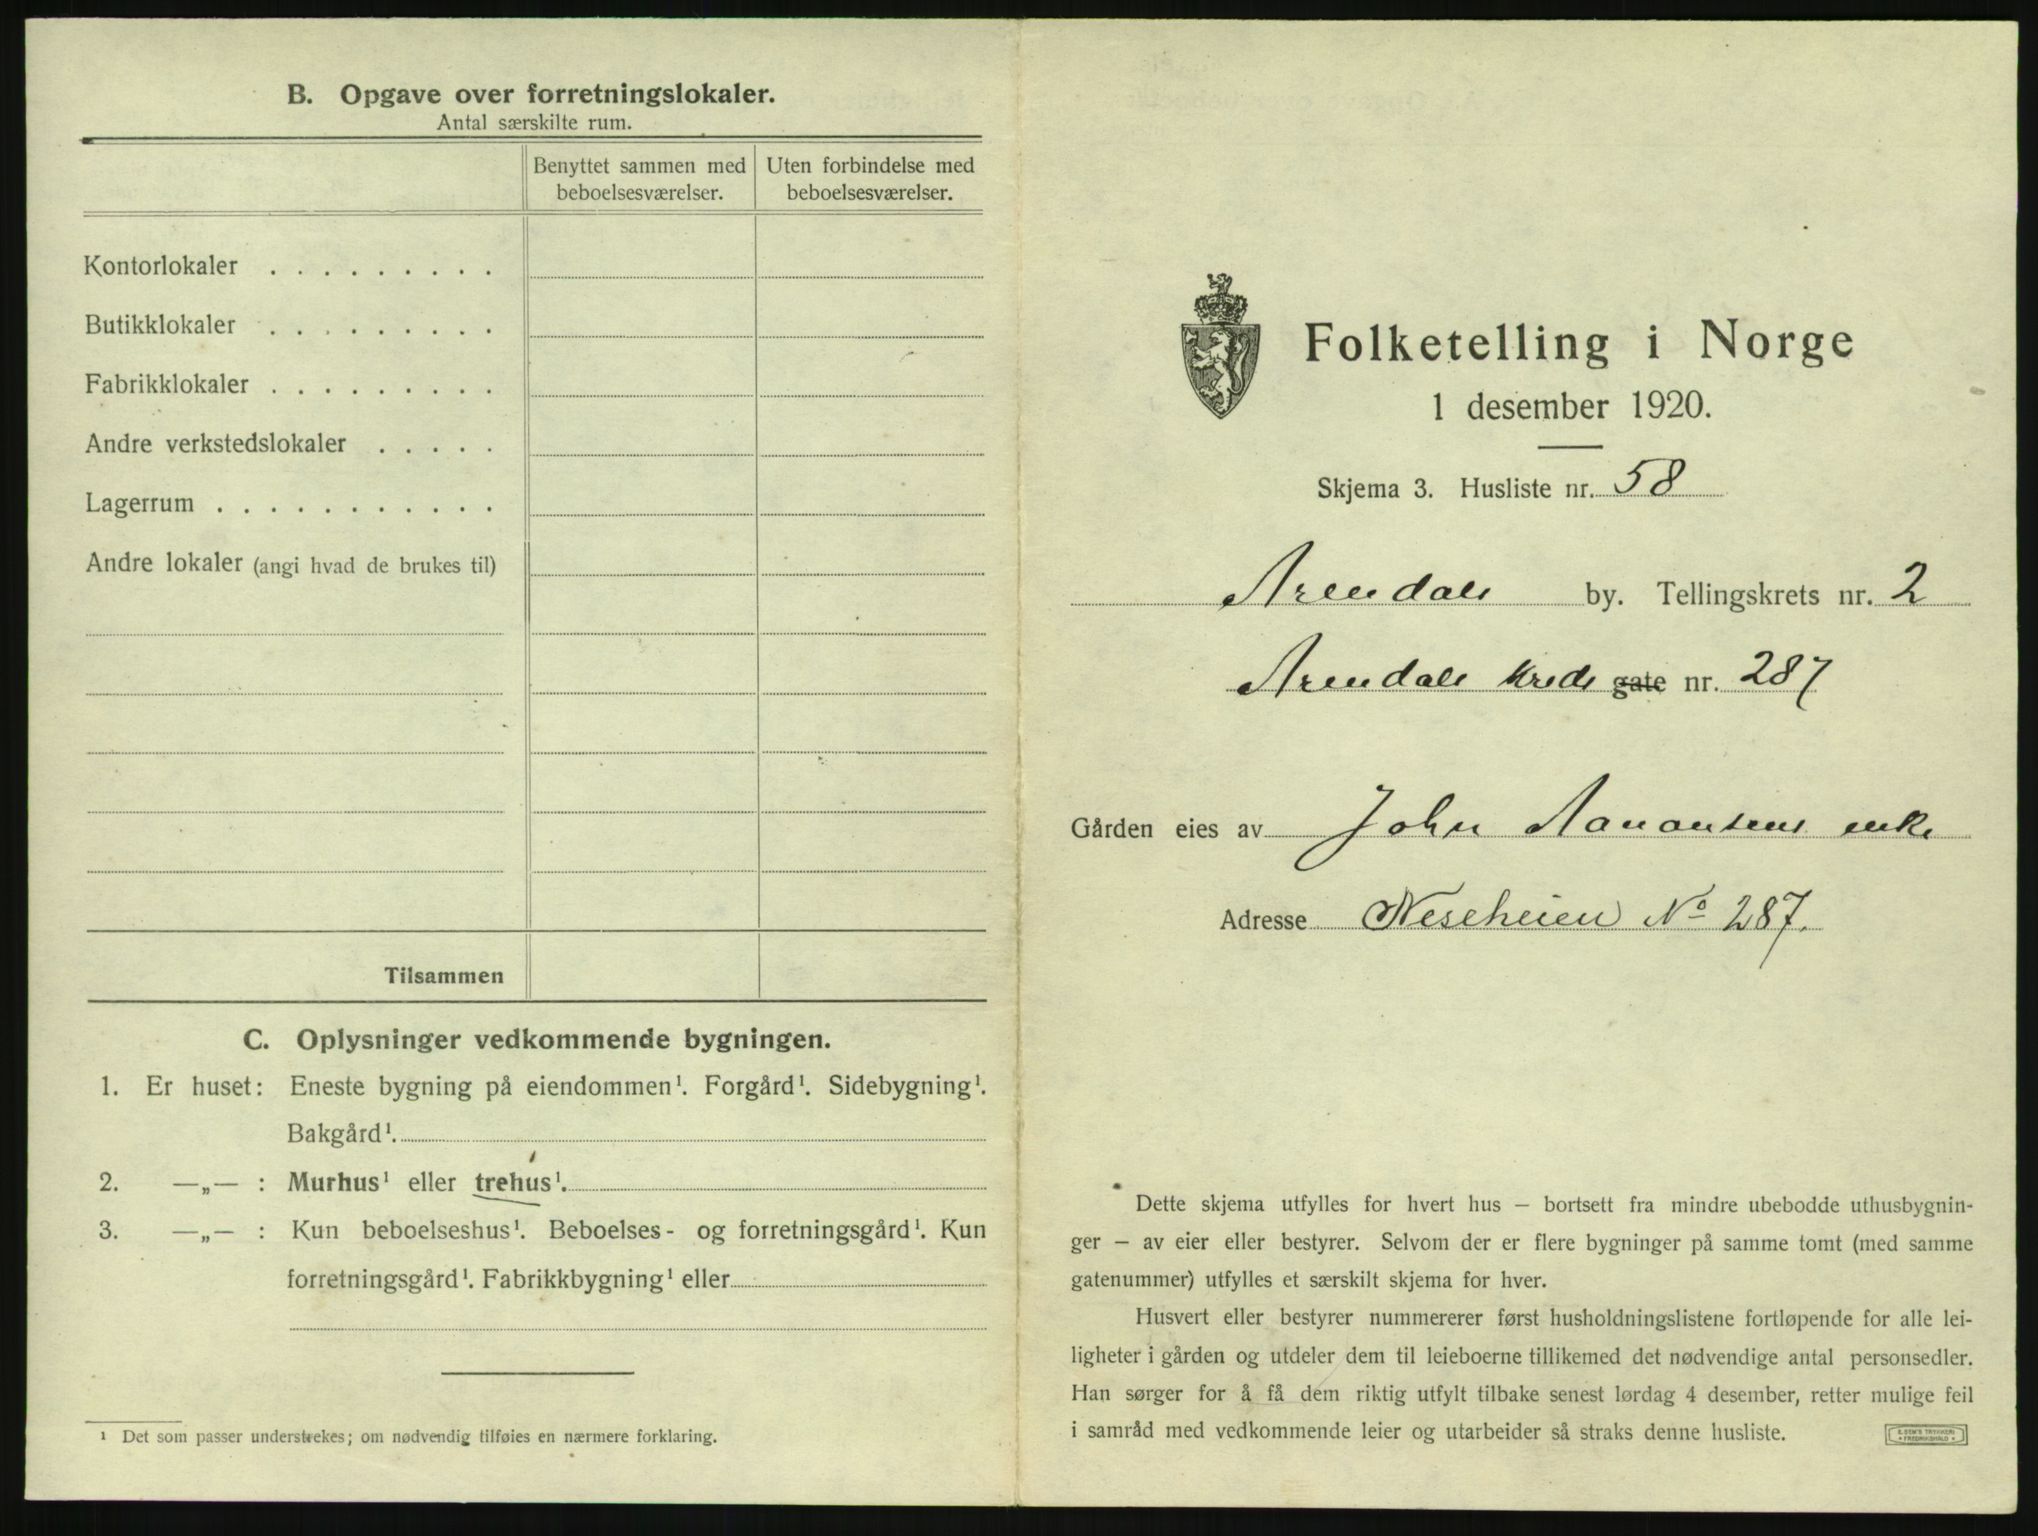 B. Opgave over forretningslokaler.
Antal særskilte rum.
Benyttet sammen med beboelsesværelser.
Uten forbindelse med beboelsesværelser.
Kontorlokaler . . . . . . . . .
Butikklokaler . . . . . . . . .
Fabrikklokaler . . . . . . . . .
Andre verkstedslokaler . . . . .
Lagerrum . . . . . . . . . . .
Andre lokaler (angi hvad de brukes til)
Tilsammen
C. Oplysninger vedkommende bygningen.
1. Er huset: Eneste bygning på eiendommen¹. Forgård¹. Sidebygning¹.
Bakgård¹.
2. —„— : Murhus¹ eller trehus¹.
3. —„— : Kun beboelseshus¹. Beboelses- og forretningsgård¹. Kun
forretningsgård¹. Fabrikkbygning¹ eller
¹ Det som passer understrekes; om nødvendig tilføies en nærmere forklaring.
Folketelling i Norge
1 desember 1920.
Skjema 3. Husliste nr. 58
Arendals by. Tellingskrets nr. 2
Arendals kreds gate nr. 287
Gården eies av John Aanonsens enke
Adresse Neseheien No 287.
Dette skjema utfylles for hvert hus — bortsett fra mindre ubebodde uthusbygnin-
ger — av eier eller bestyrer. Selvom der er flere bygninger på samme tomt (med samme
gatenummer) utfylles et særskilt skjema for hver.
Husvert eller bestyrer nummererer først husholdningslistene fortløpende for alle lei-
ligheter i gården og utdeler dem til leieboerne tillikemed det nødvendige antal personsedler.
Han sørger for å få dem riktig utfylt tilbake senest lørdag 4 desember, retter mulige feil
i samråd med vedkommende leier og utarbeider så straks denne husliste.
E. SEM'S TRYKKERI
FREDRIKSHALD